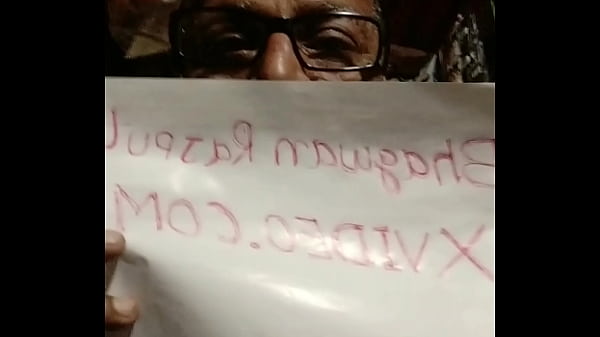 Bhagwan Rajput
XVIDEO.COM